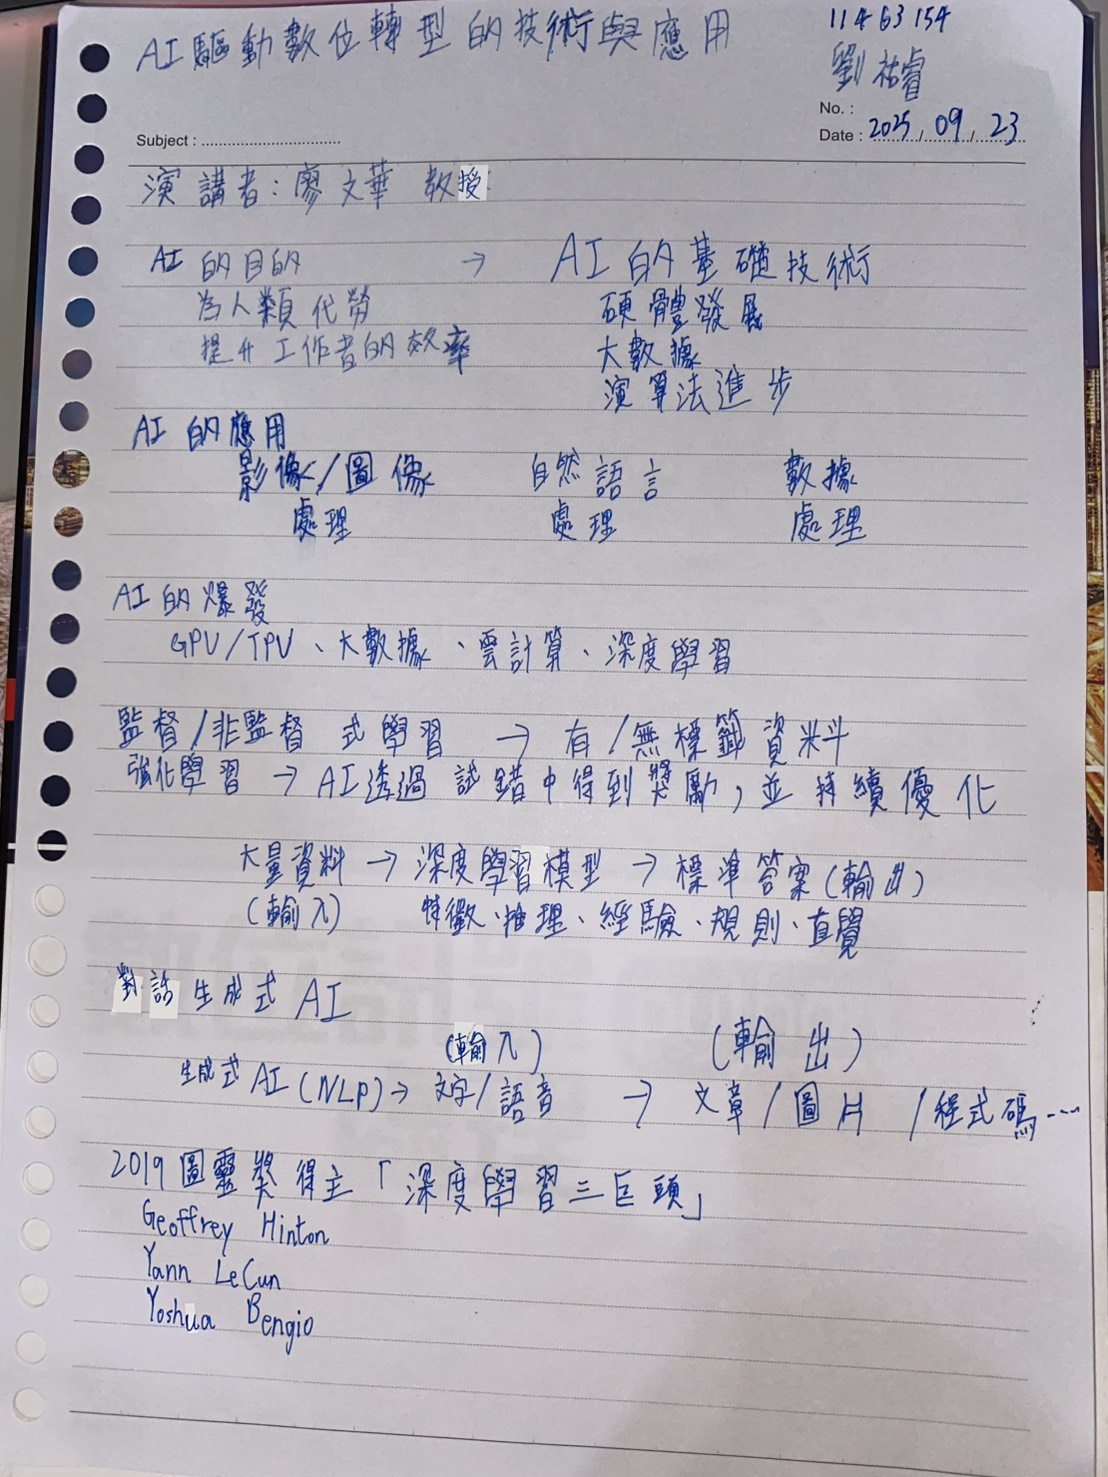 11463154
AI驅動數位轉型的技術與應用
劉祐睿
No. :
Subject : ................................
Date : 2025 / 09 / 23
演講者:廖文華 教授
AI 的目的 → AI的基礎技術
為人類代勞 硬體發展
提升工作者的效率 大數據
演算法進步
AI的應用
影像/圖像 自然語言 數據
處理 處理 處理
AI的爆發
GPU/TPU、大數據、雲計算、深度學習
監督/非監督式學習 → 有/無標籤資料
強化學習 → AI透過試錯中得到獎勵,並持續優化
大量資料 → 深度學習模型 → 標準答案(輸出)
(輸入) 特徵、推理、經驗、規則、直覺
對話生成式AI
(輸入) (輸出)
生成式AI(NLP)→ 文字/語音 → 文章/圖片/程式碼...
2019圖靈獎得主「深度學習三巨頭」
Geoffrey Hinton
Yann LeCun
Yoshua Bengio